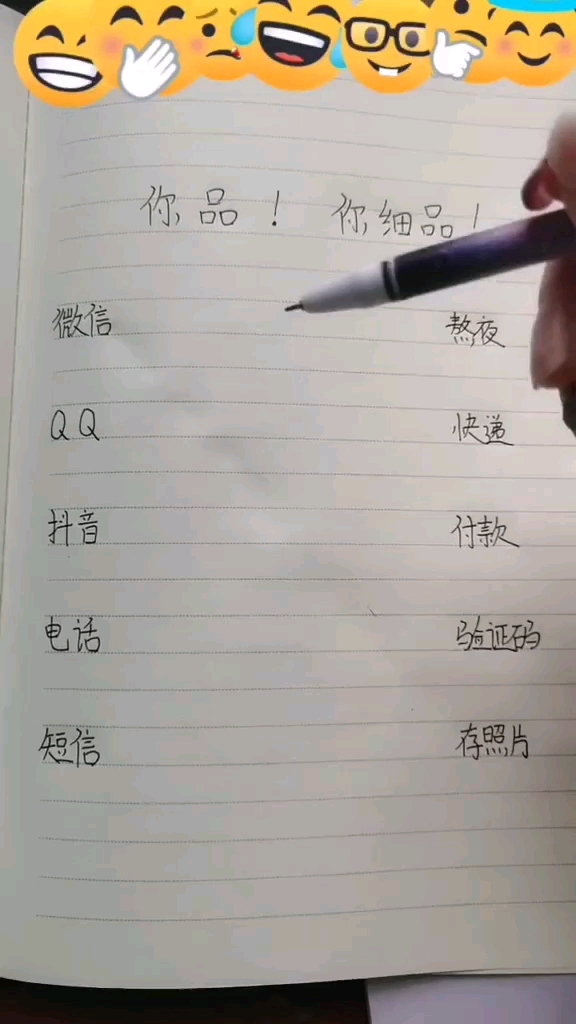 你品！ 你细品！
微信 熬夜
QQ 快递
抖音 付款
电话 验证码
短信 存照片